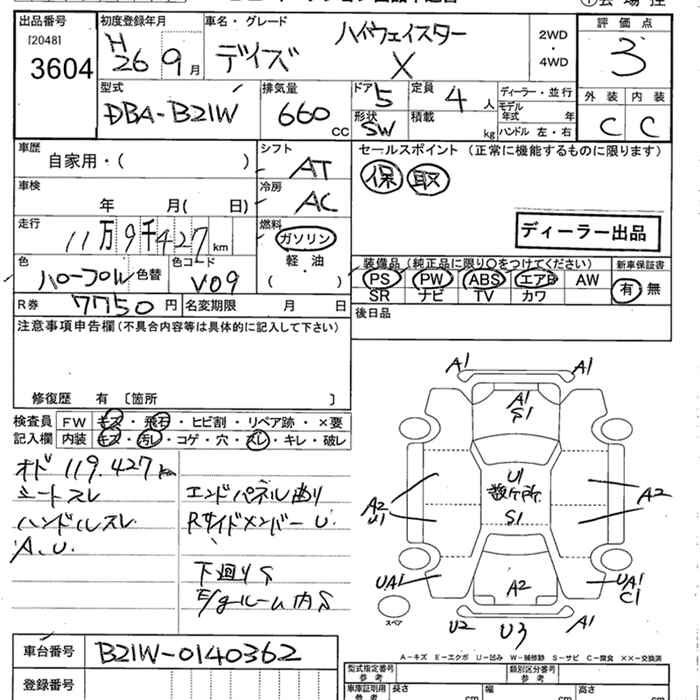 出品番号
[2048]
3604
初度登録年月
H
26 9月
車名・グレード
デイズ
ハイウェイスター
X
2WD
・
4WD
評価点
3
外装 内装
C C
型式
DBA-B21W
排気量
660
CC
ドア 5
形状
SW
定員 4 人
積載
kg
ディーラー・並行
モデル
年式 年
ハンドル 左・右
車歴
自家用・( )
シフト
AT
車検
年 月( 日)
冷房
AC
走行
11万9千427km
燃料
ガソリン
軽・油
( )
色
色替
色コード
V09
R券 7750円
名変期限 月 日
セールスポイント (正常に機能するものに限ります)
保 取
ディーラー出品
装備品 (純正品に限り○をつけてください)
新車保証書
PS PW ABS エアB AW
SR ナビ TV カワ
有 無
後日品
注意事項申告欄 (不具合内容等は具体的に記入して下さい)
修復歴 有 〔箇所 〕
検査員
記入欄
FW キズ・飛石・ヒビ割・リペア跡・×要
内装 キズ・汚レ・コゲ・穴・スレ・キレ・破レ
オド 119,427km
シートスレ
ハンドルスレ
A.U.
エンドパネル曲り
RサイドメンバーU.
下廻りS
E/gルーム内S
A1 A1
A1
S1
U1
数ケ所
S1
A2
U1
A2
UA1
UA1
C1
A2
U2 U3 A1
スペア
A-キズ E-エクボ U-凹み W-補修跡 S-サビ C-腐食 ××-交換済
車台番号
B21W-0140362
登録番号
型式指定番号
参考
類別区分番号
参考
車庫証明用
参考
長さ 幅 高さ
cm cm cm